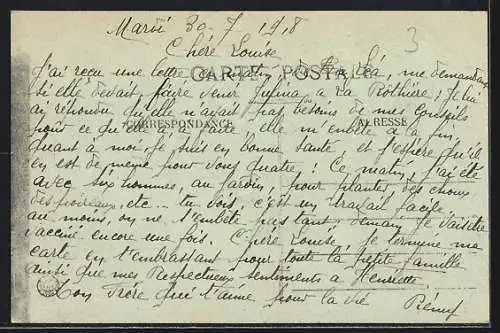 Mardi 30-7 1918
3
Chère Louise
CARTE POSTALE
J'ai reçu une lettre ce matin, de Léa, me demandant
si elle devait faire venir Julina a La Rothière; Je lui
ai répondu qu'elle n'avait pas besoins de mes conseils
CORRESPONDANCE
ADRESSE
pour ce qu'elle a a faire, elle m'embête a la fin.
quant à moi je suis en bonne santé, et j'espère qu'il
en est de même pour vous quatre; Ce matin, j'ai été
avec six hommes, au jardin, pour planter des choux
des poireaux, etc... tu vois, c'est un travail facile,
au moins, on ne s'embête pas tant, demain je vais être
vacciné encore une fois. Chère Louise, je termine ma
carte en t'embrassant pour toute la petite famille
ainsi que mes Respectueux sentiments a Henriette
Ton Frère qui t'aime pour la vie Rémy